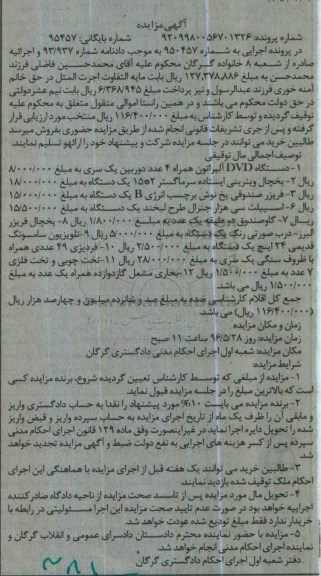 آگهی مزایده
شماره پرونده: ۹۲۰۹۹۸۰۰۵۶۷۰۱۳۲۶ شماره بایگانی: ۹۵۴۵۷
در پرونده اجرایی به شماره ۹۵۰۴۵۷ به موجب دادنامه شماره ۹۳/۹۳۷ و اجرائیه
صادره از شعبه ۸ خانواده گرگان محکوم علیه آقای محمدحسین فاضلی فرزند
محمدحسن به مبلغ ۱۲۷,۳۷۸,۸۸۶ ریال بابت مابه التفاوت اجرت المثل در حق خانم
آمنه خوری فرزند عبدالرسول و نیز پرداخت مبلغ ۶/۳۶۸/۹۴۵ ریال بابت نیم عشر دولتی
در حق دولت محکوم می باشند و در همین راستا اموال منقول متعلق به محکوم علیه
توقیف گردیده و توسط کارشناس به مبلغ ۱۱۶/۴۰۰/۰۰۰ ریال منتخب مورد ارزیابی قرار
گرفته و پس از جری تشریفات قانونی انجام شده از طریق مزایده حضوری بفروش میرسد
طالبین خرید می توانند در جلسه مزایده شرکت و پیشنهاد خود را ارائه و تسلیم نمایند.
توصیف اجمالی مال توقیفی
۱-دستگاه DVD آلبراتون همراه ۴ عدد دوربین یک سری به مبلغ ۸/۰۰۰/۰۰۰
ریال ۲-یخچال ویترینی ایستاده سرماگستر ۱۵۰۲ یک دستگاه به مبلغ ۱۸/۰۰۰/۰۰۰
ریال ۳-فریزر صندوقی یخ نوش برچسب انرژی B یک دستگاه به مبلغ ۱۵/۰۰۰/۰۰۰
ریال ۶-اسپیلت سی هزار جنرال طرح لبخند یک دستگاه به مبلغ ۱۵/۵۰۰/۰۰۰
ریال ۷-گاوصندوق دو طبقه یک عدد به مبلغ ۱/۸۰۰/۰۰۰ ریال ۸-یخچال فریزر
البرز- درب صورتی رنگ یک دستگاه به مبلغ ۵/۰۰۰/۰۰۰ ریال ۹-تلویزیون سامسونگ
قدیمی ۲۴ اینچ یک دستگاه به مبلغ ۲/۵۰۰/۰۰۰ ریال ۱۰-فردیزی ۴۹ عددی همراه
با ظروف سنگی یک سری به مبلغ ۲۸/۰۰۰/۰۰۰ ریال ۱۱-تخت چوبی و تخت فلزی
۷ عدد به مبلغ ۱/۵۰۰/۰۰۰ ریال ۱۲-بخاری مشعل گازدوازده همراه یک عدد به مبلغ
۱/۵۰۰/۰۰۰ ریال می باشد.
جمع کل اقلام کارشناسی شده به مبلغ صد و شانزده میلیون و چهارصد هزار ریال
(۱۱۶/۴۰۰/۰۰۰ ریال) می باشد.
زمان و مکان مزایده
زمان مزایده: روز ۹۶/۵/۲۸ ساعت ۱۱ صبح
مکان مزایده: شعبه اول اجرای احکام مدنی دادگستری گرگان
شرایط مزایده:
۱-مزایده از مبلغی که توسط کارشناس تعیین گردیده شروع، برنده مزایده کسی
است که بالاترین مبلغ را در جلسه مزایده قبول نماید.
۲-برنده مزایده می بایست ۱۰% مورد پیشنهاد را نقدا به حساب دادگستری واریز
و مابقی آن را ظرف یک ماه از تاریخ اجرای مزایده به حساب سپرده واریز و قبض واریز
شده را تحویل دایره اجرا نماید در غیر اینصورت وفق ماده ۱۲۹ قانون اجرای احکام مدنی
سپرده پس از کسر هزینه های اجرایی به نفع دولت ضبط و آگهی مزایده تجدید خواهد
شد.
۳-طالبین خرید می توانند یک هفته قبل از اجرای مزایده با هماهنگی این اجرای
احکام ملک توقیف شده بازدید نمایند.
۴-تحویل مال مورد مزایده پس از تایید صحت مزایده از ناحیه دادگاه صادر کننده
اجراییه خواهد بود در صورت عدم تایید صحت مزایده این اجرا مسئولیتی در رابطه با
خریدار ندارد فقط مبلغ تودیع شده عودت خواهد شد.
۵-مزایده با حضور نماینده محترم دادستان دادسرای عمومی و انقلاب گرگان و
نماینده اجرای احکام مدنی انجام خواهد شد.
دفتر شعبه اول اجرای احکام دادگستری گرگان